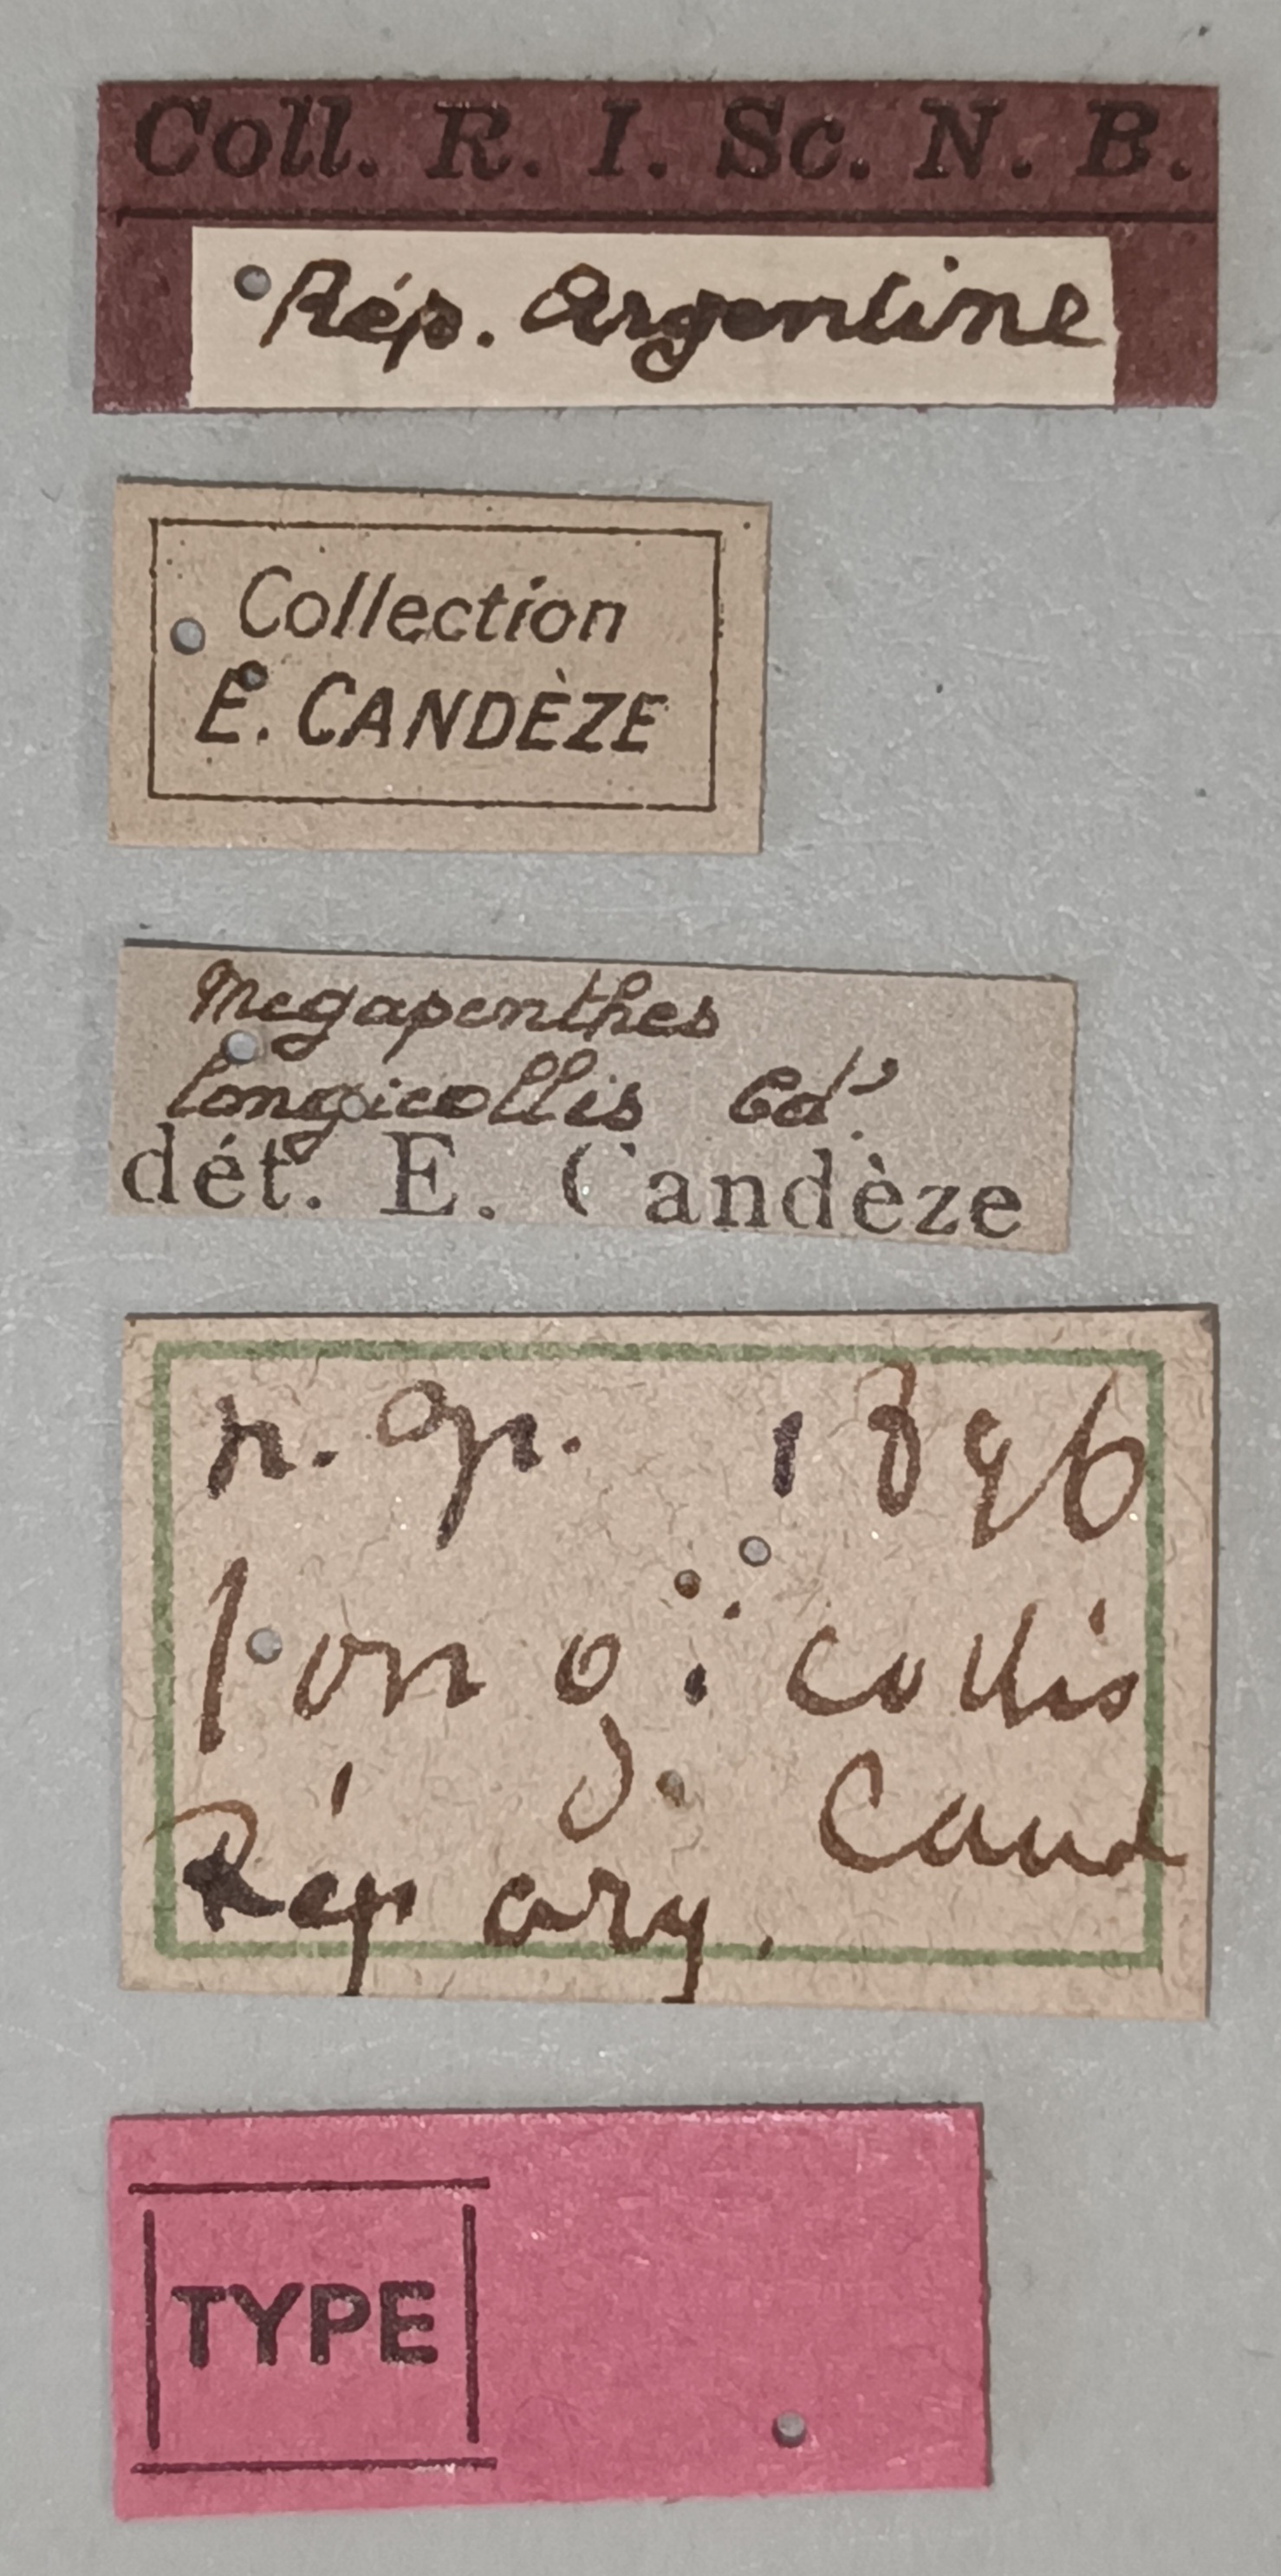 Coll. R. I. Sc. N. B.
Rép. Argentine
Collection
E. CANDÈZE
Megapenthes
longicollis Cd.
dét. E. Candèze
n. sp. 1896
longicollis
Cand
Rép arg.
TYPE